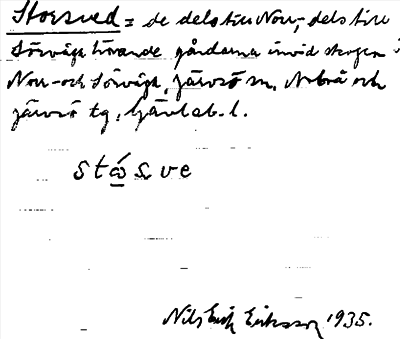 Storsved = de dels till Norr-, dels till
Sörväga hörande gårdarna invid skogen i
Norr- och Sörväga, Järvsö sn, Arbrå och
Järvsö tg, Gävleb. l.
stósve
Nils Erik Eriksson 1935.